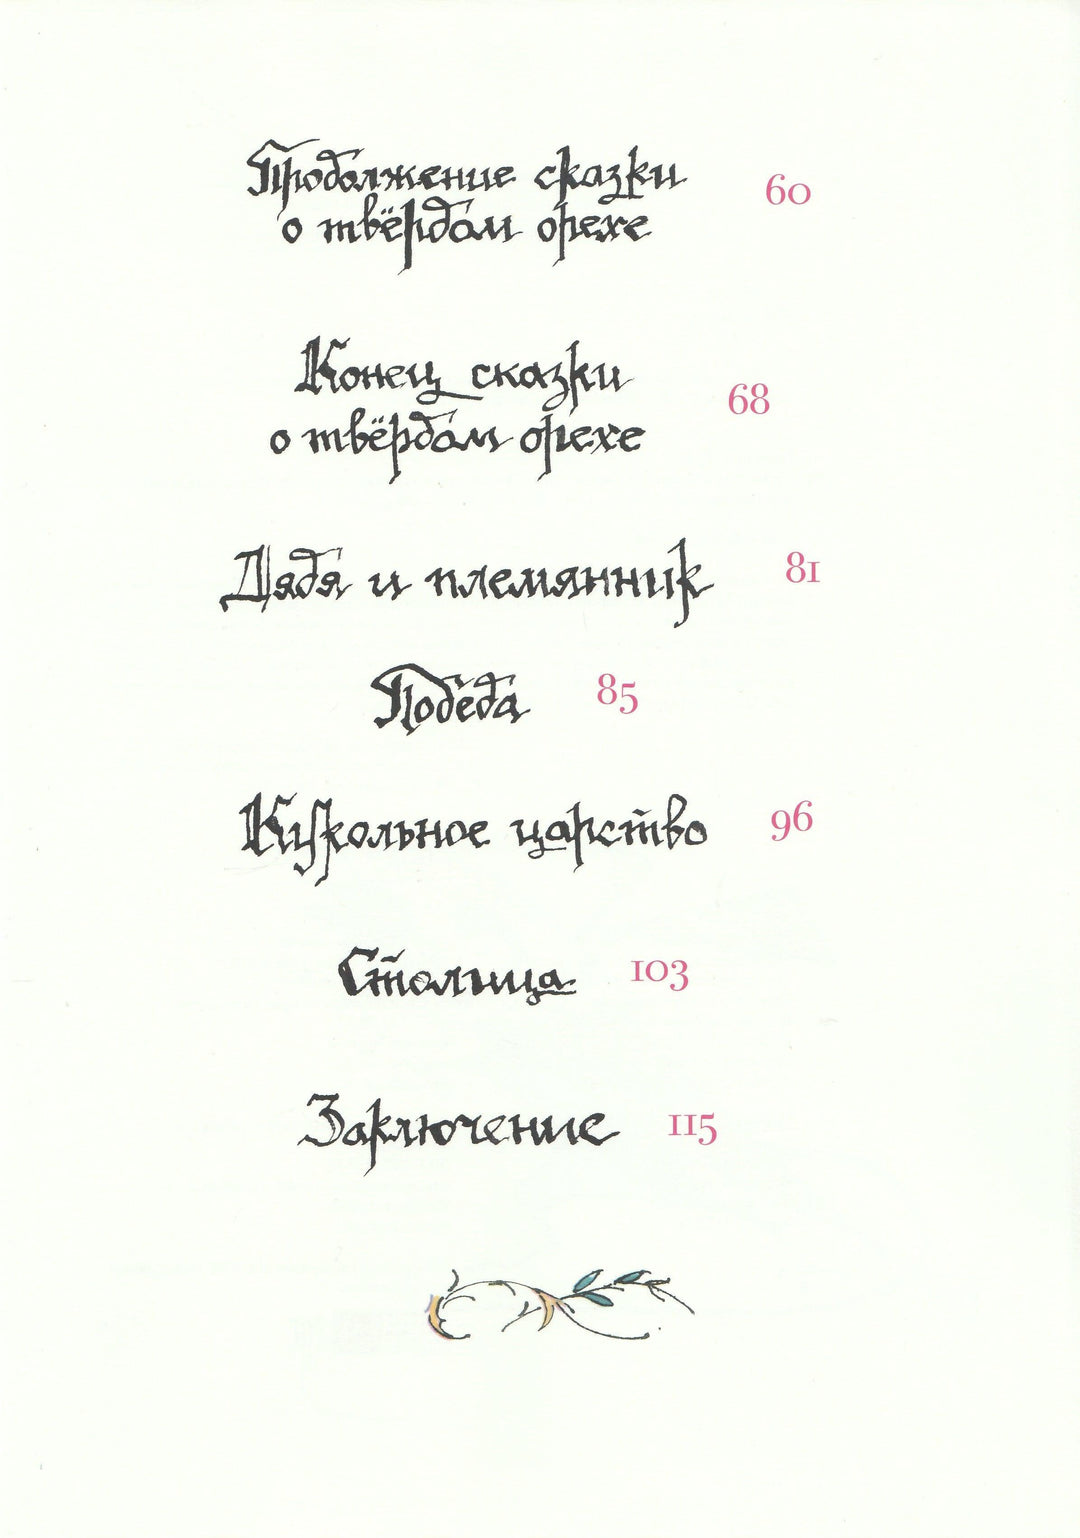 Продолжение сказки
о твёрдом орехе 60
Конец сказки
о твёрдом орехе 68
Дядя и племянник 81
Победа 85
Кукольное царство 96
Столица 103
Заключение 115